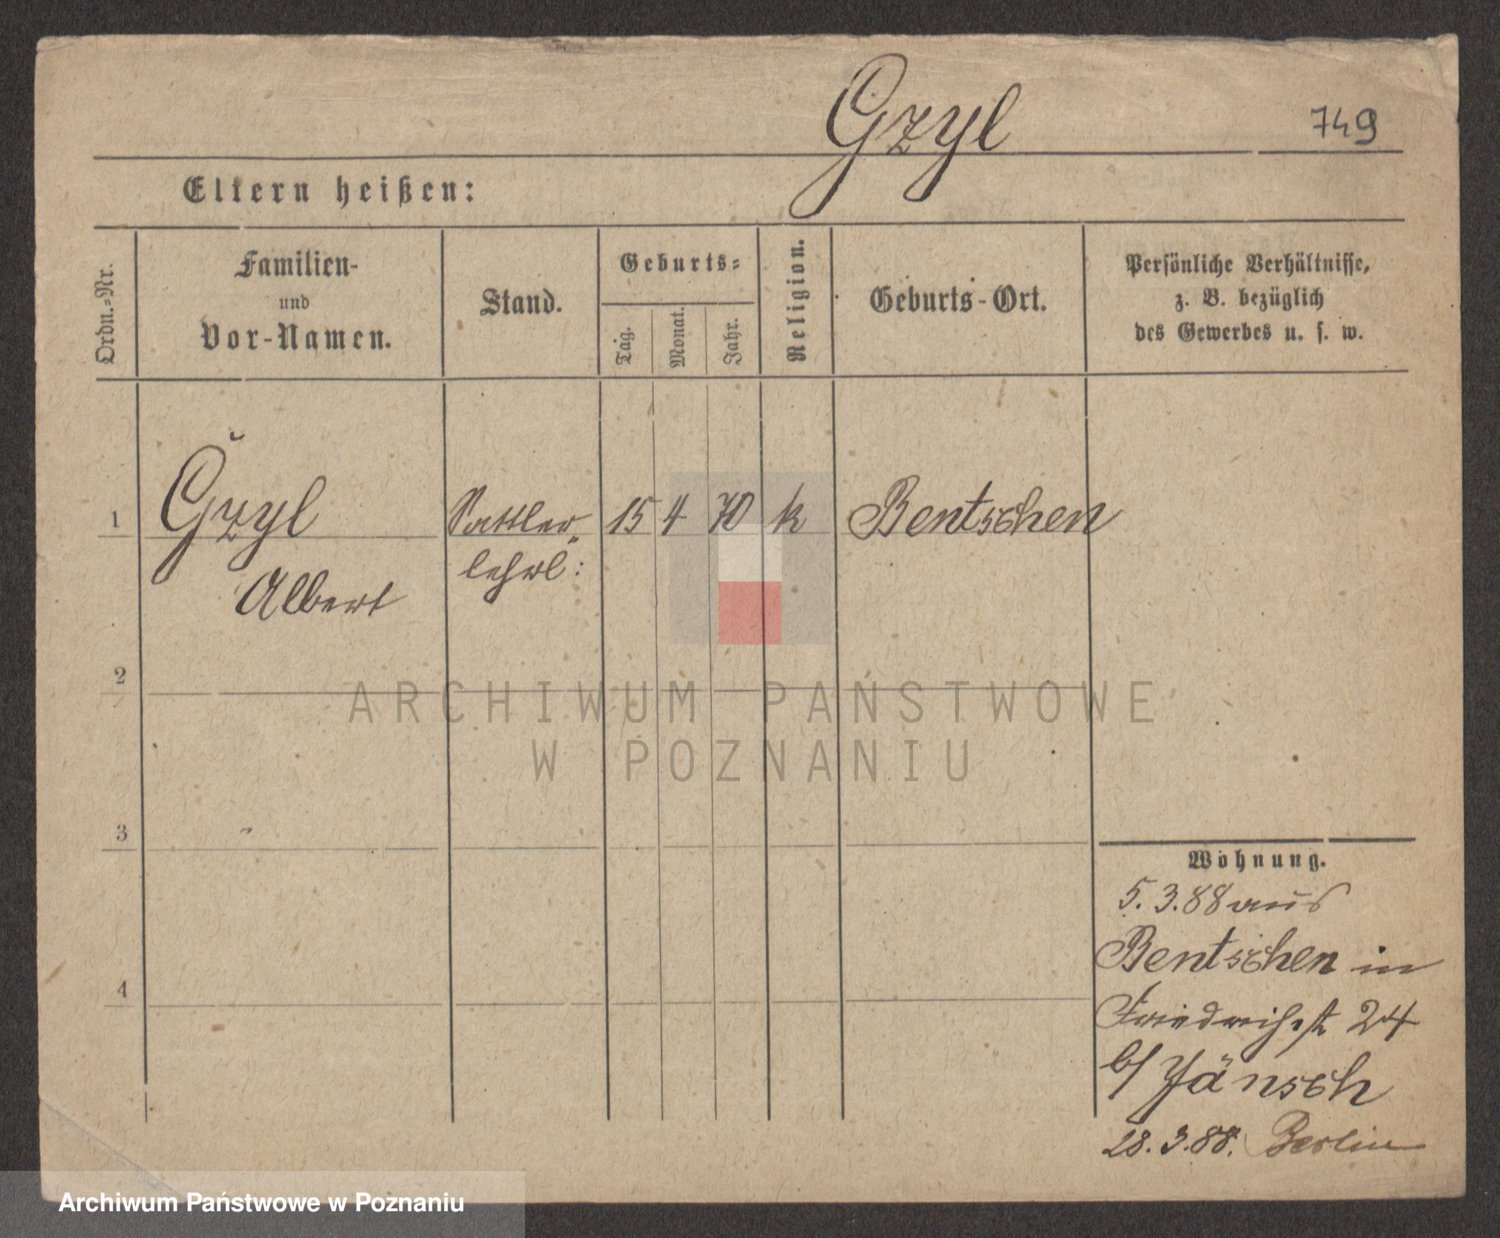 Gzyl
749
Eltern heißen:
Ordn.-Nr.
Familien-
und
Vor-Namen.
Stand.
Geburts-
Tag.
Monat.
Jahr.
Religion.
Geburts-Ort.
Persönliche Verhältnisse,
z. B. bezüglich
des Gewerbes u. s. w.
1 Gzyl Sattler 15 4 70 k Bentschen
lehrl:
Albert
2
ARCHIWUM PAŃSTWOWE
W POZNANIU
3
Wohnung.
5. 3. 88 aus
Bentschen in
4
Friedrichst 24
b/ Jänsch
28. 3. 88. Berlin
Archiwum Państwowe w Poznaniu